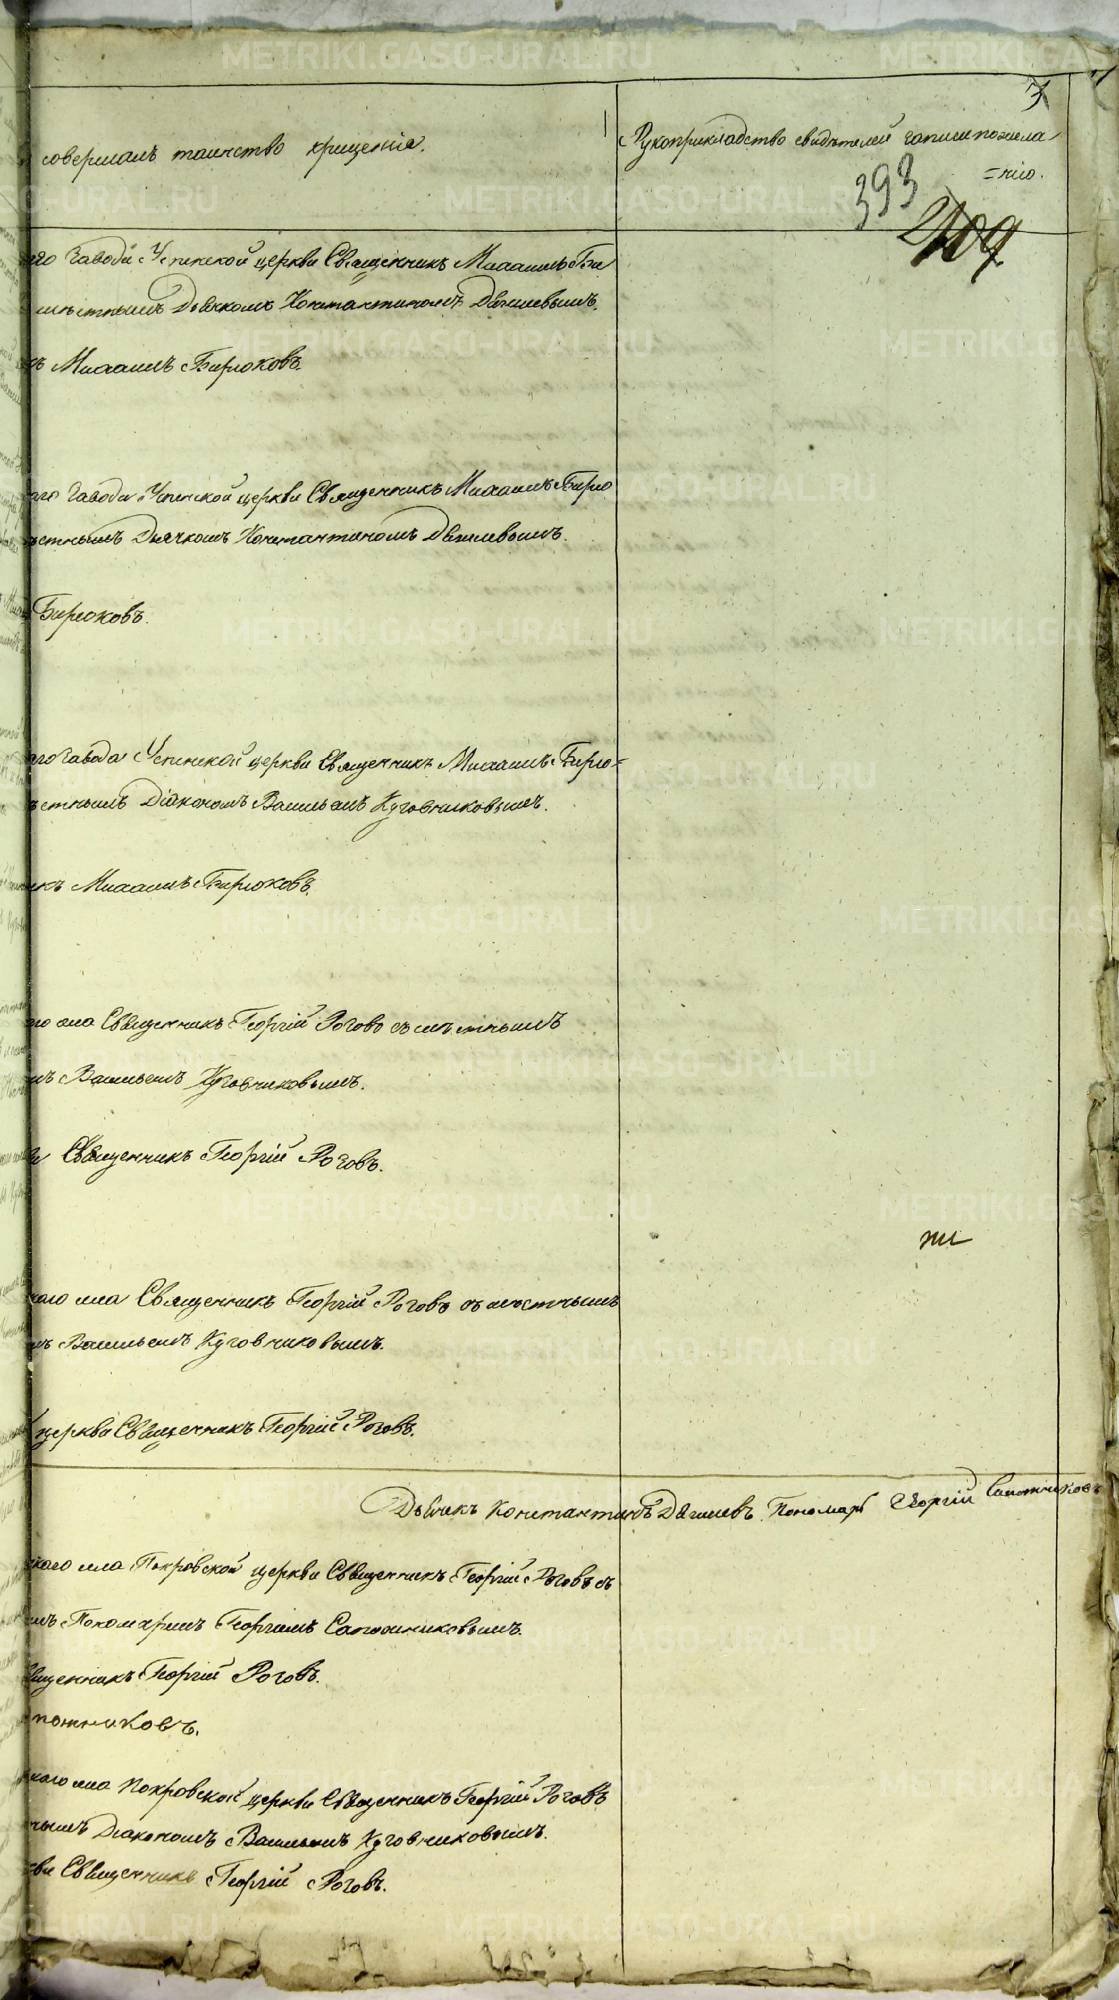 совершалъ таинство крещенія.
Рукоприкладство свидѣтелей записи по жела
=нію.
393
2109
завода Успенской церкви Священникъ Михаилъ Би
мѣстнымъ Дьячкомъ Константиномъ Дягилевымъ.
Михаилъ Бирюковъ.
завода Успенской церкви Священникъ Михаилъ Бирю
Дьячкомъ Константиномъ Дягилевымъ.
Бирюковъ.
завода Успенской церкви Священникъ Михаилъ Бирю=
Діакономъ Васильемъ Кузовниковымъ.
Михаилъ Бирюковъ.
села Священникъ Георгій Роговъ съ мѣстнымъ
Васильемъ Кузовниковымъ.
Священникъ Георгій Роговъ.
села Священникъ Георгій Роговъ съ мѣстнымъ
Васильемъ Кузовниковымъ.
церкви Священникъ Георгій Роговъ.
Дьячекъ Константинъ Дягилевъ. Пономарь Георгій Сапожниковъ
села Покровской церкви Священникъ Георгій Роговъ съ
Пономаремъ Георгіемъ Сапожниковымъ.
Георгій Роговъ.
пожниковъ.
села Покровской церкви Священникъ Георгій Роговъ
Діакономъ Васильемъ Кузовниковымъ.
Священникъ Георгій Роговъ.
METRIKI.GASO-URAL.RU